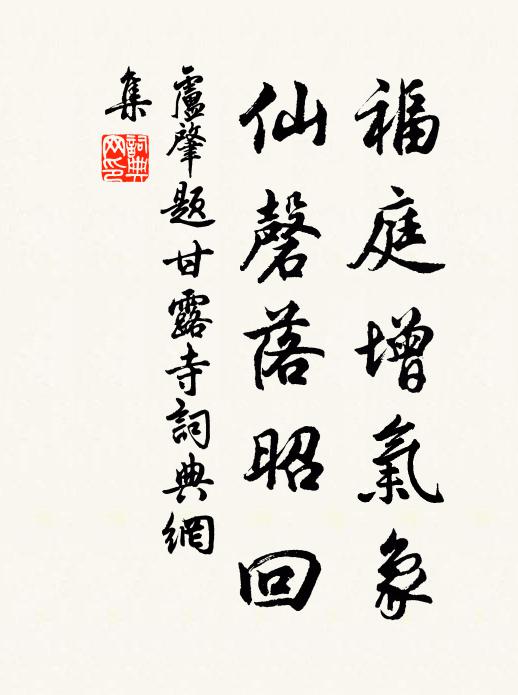 福庭增氣象
仙磬落昭回
盧肇題甘露寺詞典網
集
詞典
网印